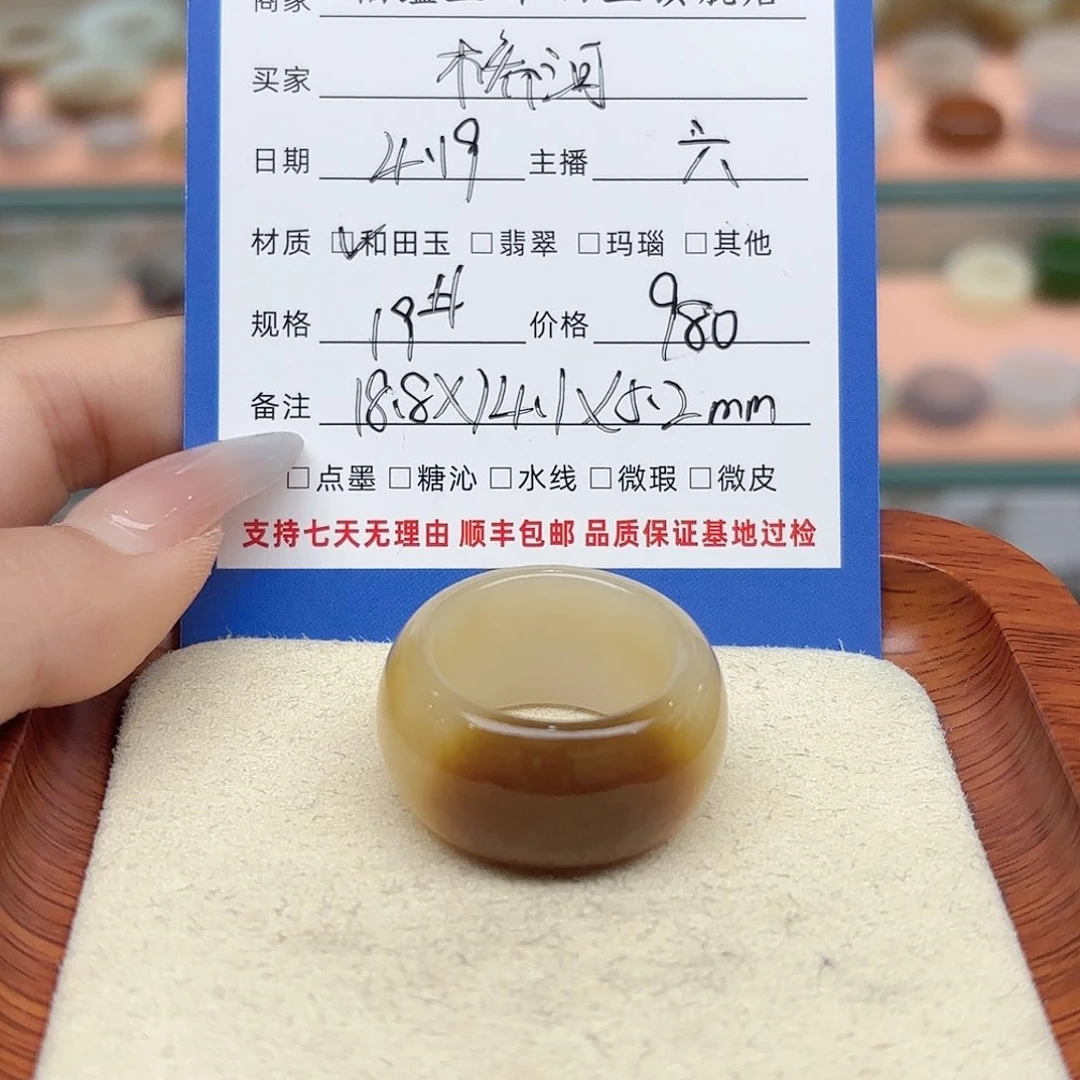 商家
买家
日期 4.19 主播 六
材质 ☑和田玉 □翡翠 □玛瑙 □其他
规格 19# 价格 980
备注 18.8X14.1X5.2mm
□点墨 □糖沁 □水线 □微瑕 □微皮
支持七天无理由 顺丰包邮 品质保证基地过检